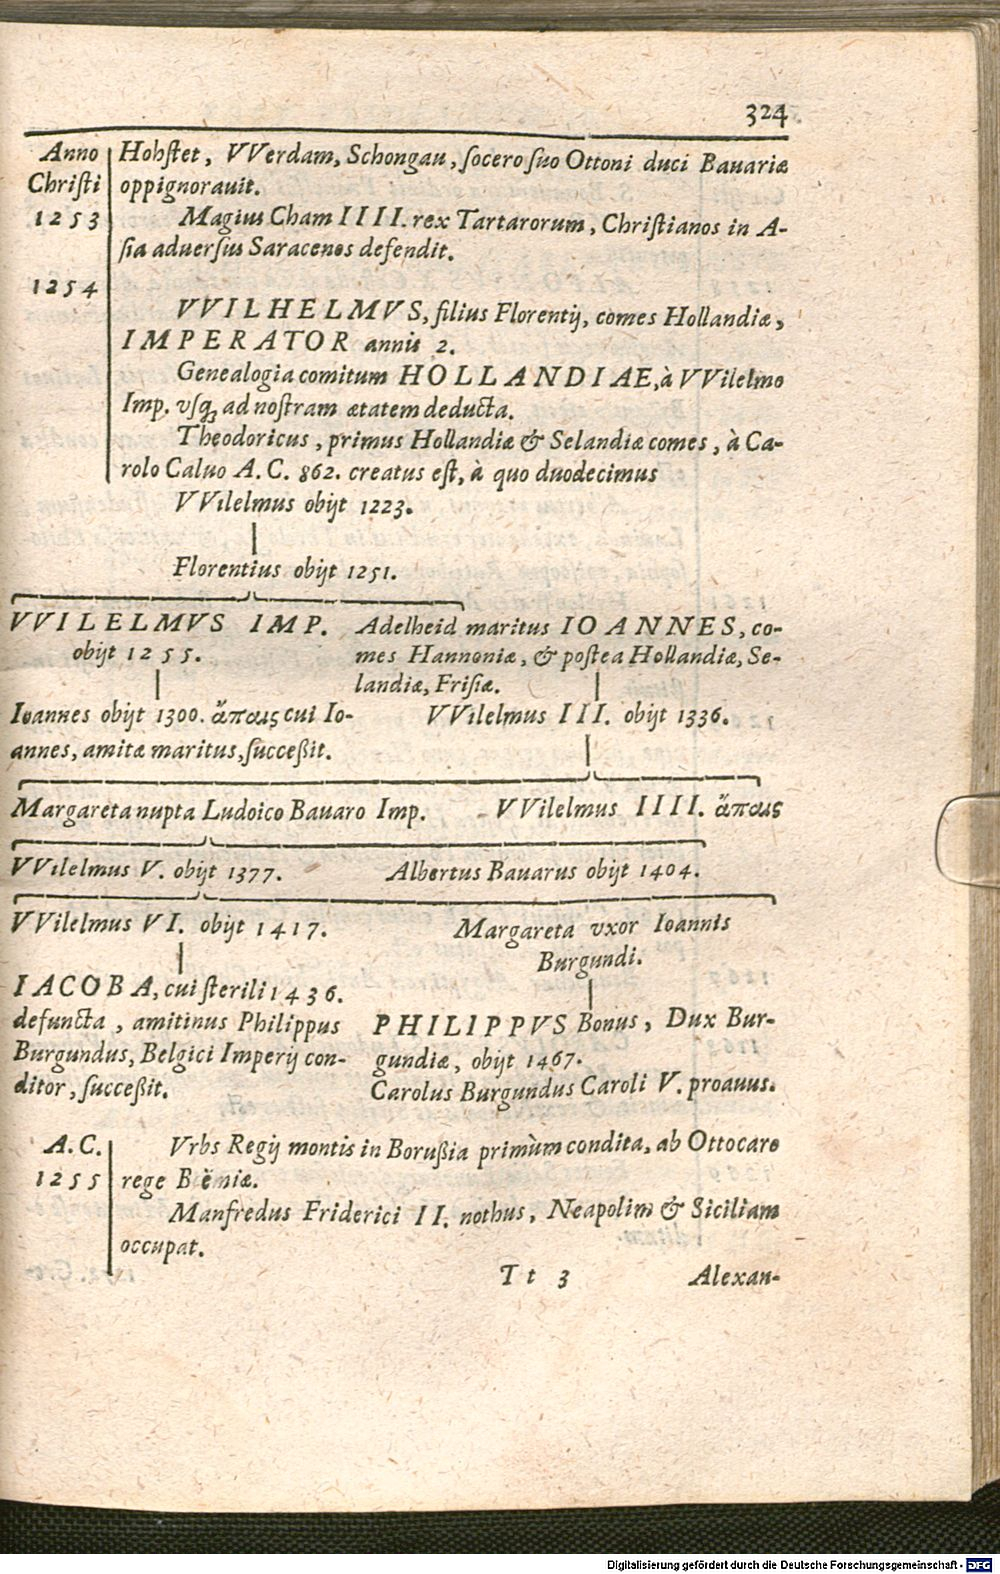 324
Anno Hohſtet, VVerdam, Schongau, ſocero ſuo Ottoni duci Bauariæ
Chriſti oppignorauit.
1253 Magius Cham IIII. rex Tartarorum, Chriſtianos in A-
ſia aduerſius Saracenos defendit.
1254
VVILHELMVS, filius Florentij, comes Hollandiæ,
IMPERATOR annis 2.
Genealogia comitum HOLLANDIAE, à VVilelmo
Imp. vſq; ad noſtram ætatem deducta.
Theodoricus, primus Hollandiæ & Selandiæ comes, à Ca-
rolo Caluo A.C. 862. creatus eſt, à quo duodecimus
VVilelmus obijt 1223.
Florentius obijt 1251.
VVILELMVS IMP. Adelheid maritus IOANNES, co-
obijt 1255. mes Hannoniæ, & poſtea Hollandiæ, Se-
landiæ, Friſiæ.
Ioannes obijt 1300. ἄπαις cui Io- VVilelmus III. obijt 1336.
annes, amitæ maritus, ſucceßit.
Margareta nupta Ludoico Bauaro Imp. VVilelmus IIII. ἄπαις
VVilelmus V. obijt 1377. Albertus Bauarus obijt 1404.
VVilelmus VI. obijt 1417. Margareta vxor Ioannis
Burgundi.
IACOBA, cui ſterili 1436.
defuncta, amitinus Philippus PHILIPPVS Bonus, Dux Bur-
Burgundus, Belgici Imperij con- gundiæ, obijt 1467.
ditor, ſucceßit. Carolus Burgundus Caroli V. proauus.
A.C. Vrbs Regij montis in Borußia primùm condita, ab Ottocaro
1255 rege Bëmiæ.
Manfredus Friderici II. nothus, Neapolim & Siciliam
occupat.
Tt 3 Alexan-
Digitalisierung gefördert durch die Deutsche Forschungsgemeinschaft - DFG